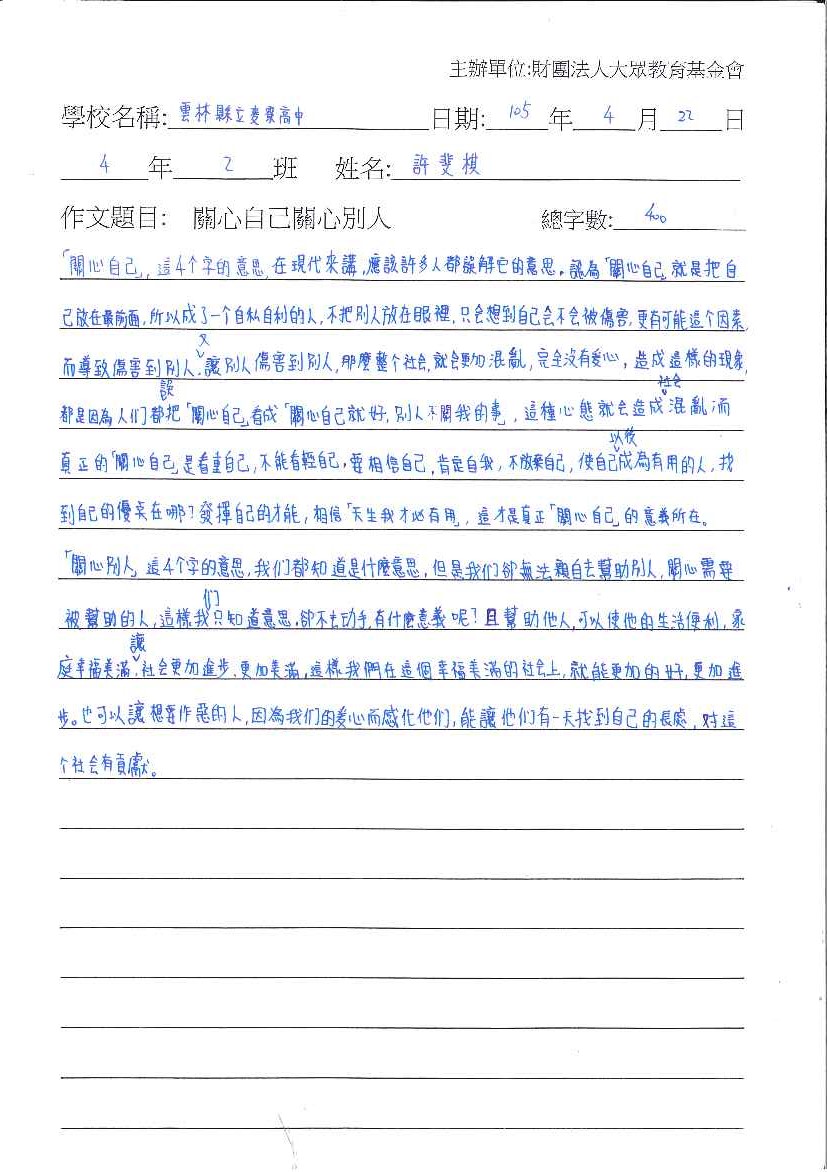 主辦單位:財團法人大眾教育基金會
學校名稱: 雲林縣立麥寮高中 日期: 105 年 4 月 22 日
4 年 2 班 姓名: 許斐棋
作文題目: 關心自己關心別人 總字數: 400
「關心自己」,這4个字的意思,在現代來講,應該許多人都誤解它的意思,認為「關心自己」就是把自
己放在最前面,所以成了一个自私自利的人,不把別人放在眼裡,只会想到自己会不会被傷害,更有可能這个因素,
而導致傷害到別人,又讓別人傷害到別人,那麼整个社会,就会更加混亂,完全沒有爱心,造成這樣的現象,
都是因為人们都誤把「關心自己」看成「關心自己就好,別人不關我的事」,這種心態就会造成社会混亂,而
真正的「關心自己」是看重自己,不能看輕自己,要相信自己,肯定自我,不放棄自己,使自己以後成為有用的人,找
到自己的優点在哪?發揮自己的才能,相信「天生我才必有用」,這才是真正「關心自己」的意義所在。
「關心別人」這4个字的意思,我们都知道是什麼意思,但是我们卻無法親自去幫助別人,關心需要
被幫助的人,這樣我们只知道意思,卻不去动手,有什麼意義呢?且幫助他人,可以使他的生活便利,家
庭幸福美滿,讓社会更加進步,更加美滿,這樣我們在這個幸福美滿的社会上,就能更加的好,更加進
步。也可以讓想要作惡的人,因為我们的爱心而感化他们,能讓他们有一天找到自己的長處,对這
个社会有貢獻。